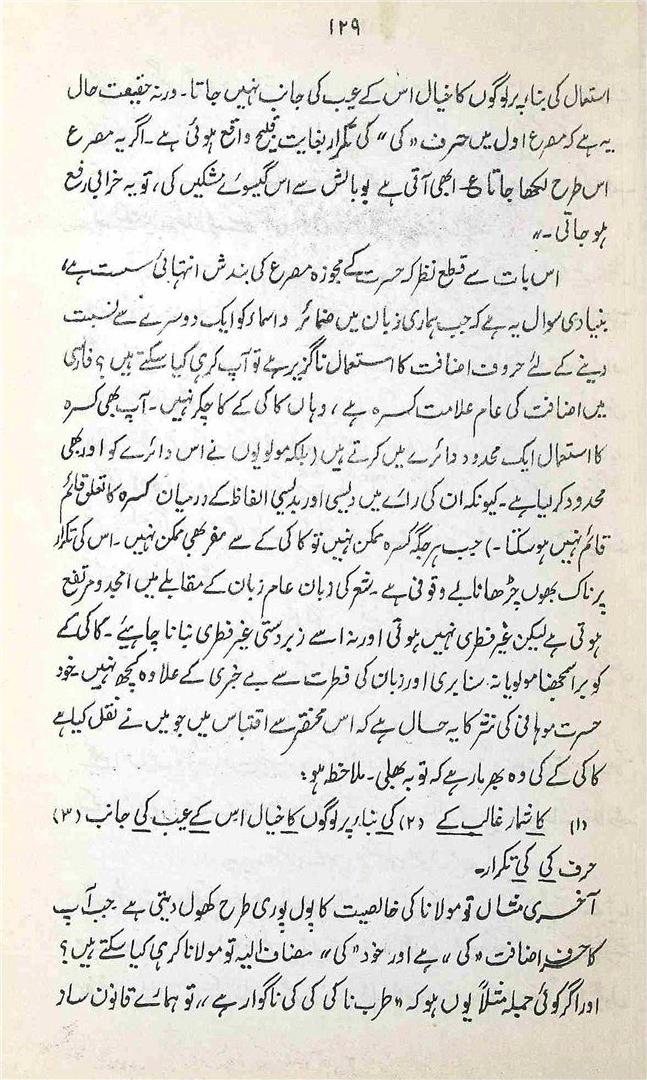 ۱۲۹
استعمال کی بناء پر لوگوں کا خیال اس کے عیب کی جانب نہیں جاتا۔ ورنہ حقیقت حال
یہ ہے کہ مصرع اول میں حرف "کی" کی تکرار بغایت قبیح واقع ہوئی ہے۔ اگر یہ مصرع
اس طرح لکھا جاتا ع۔ ابھی آتی ہے بو بالش سے اس گیسوئے مشکیں کی، تو یہ خرابی رفع
ہو جاتی۔"
اس بات سے قطع نظر کہ حسرت کے مجوزہ مصرع کی بندش انتہائی سست ہے،
بنیادی سوال یہ ہے کہ جب ہماری زبان میں ضمائر و اسماء کو ایک دوسرے سے نسبت
دینے کے لئے حروف اضافت کا استعمال ناگزیر ہے تو آپ کر ہی کیا سکتے ہیں؟ فارسی
میں اضافت کی عام علامت کسرہ ہے، وہاں کا کی کے کا چکر نہیں۔ آپ بھی کسرہ
کا استعمال ایک محدود دائرے میں کرتے ہیں (بلکہ مولویوں نے اس دائرے کو اور بھی
محدود کر لیا ہے۔ کیونکہ ان کی رائے میں دیسی اور بدیسی الفاظ کے درمیان کسرہ کا تعلق قائم
قائم نہیں ہو سکتا۔) جب ہر جگہ کسرہ ممکن نہیں تو کا کی کے سے مفر بھی ممکن نہیں۔ اس کی تکرار
پر ناک بھوں چڑھانا بے وقوفی ہے۔ شعر کی زبان عام زبان کے مقابلے میں امجد و مرتفع
ہوتی ہے لیکن غیر فطری نہیں ہوتی اور نہ اسے زبردستی غیر فطری بنانا چاہیئے۔ کا کی کے
کو برا سمجھنا مولویانہ سنابری اور زبان کی فطرت سے بے خبری کے علاوہ کچھ نہیں۔ خود
حسرت موہانی کی نثر کا یہ حال ہے کہ اس مختصر سے اقتباس میں جو میں نے نقل کیا ہے
کا کی کے کی وہ بھرمار ہے کہ توبہ بھلی۔ ملاحظہ ہو:
(۱) کا شمار غالب کے (۲) کی بناء پر لوگوں کا خیال اس کے عیب کی جانب (۳)
حرف کی کی تکرار۔
آخری مثال تو مولانا کی خالصیت کا پول پوری طرح کھول دیتی ہے جب آپ
کا حرف اضافت "کی" ہے اور خود "کی" مضاف الیہ تو مولانا کر ہی کیا سکتے ہیں؟
اور اگر کوئی جملہ مثلاً یوں ہو کہ "طرب ناکی کی کی ناگوار ہے" تو ہمارے قانون ساز